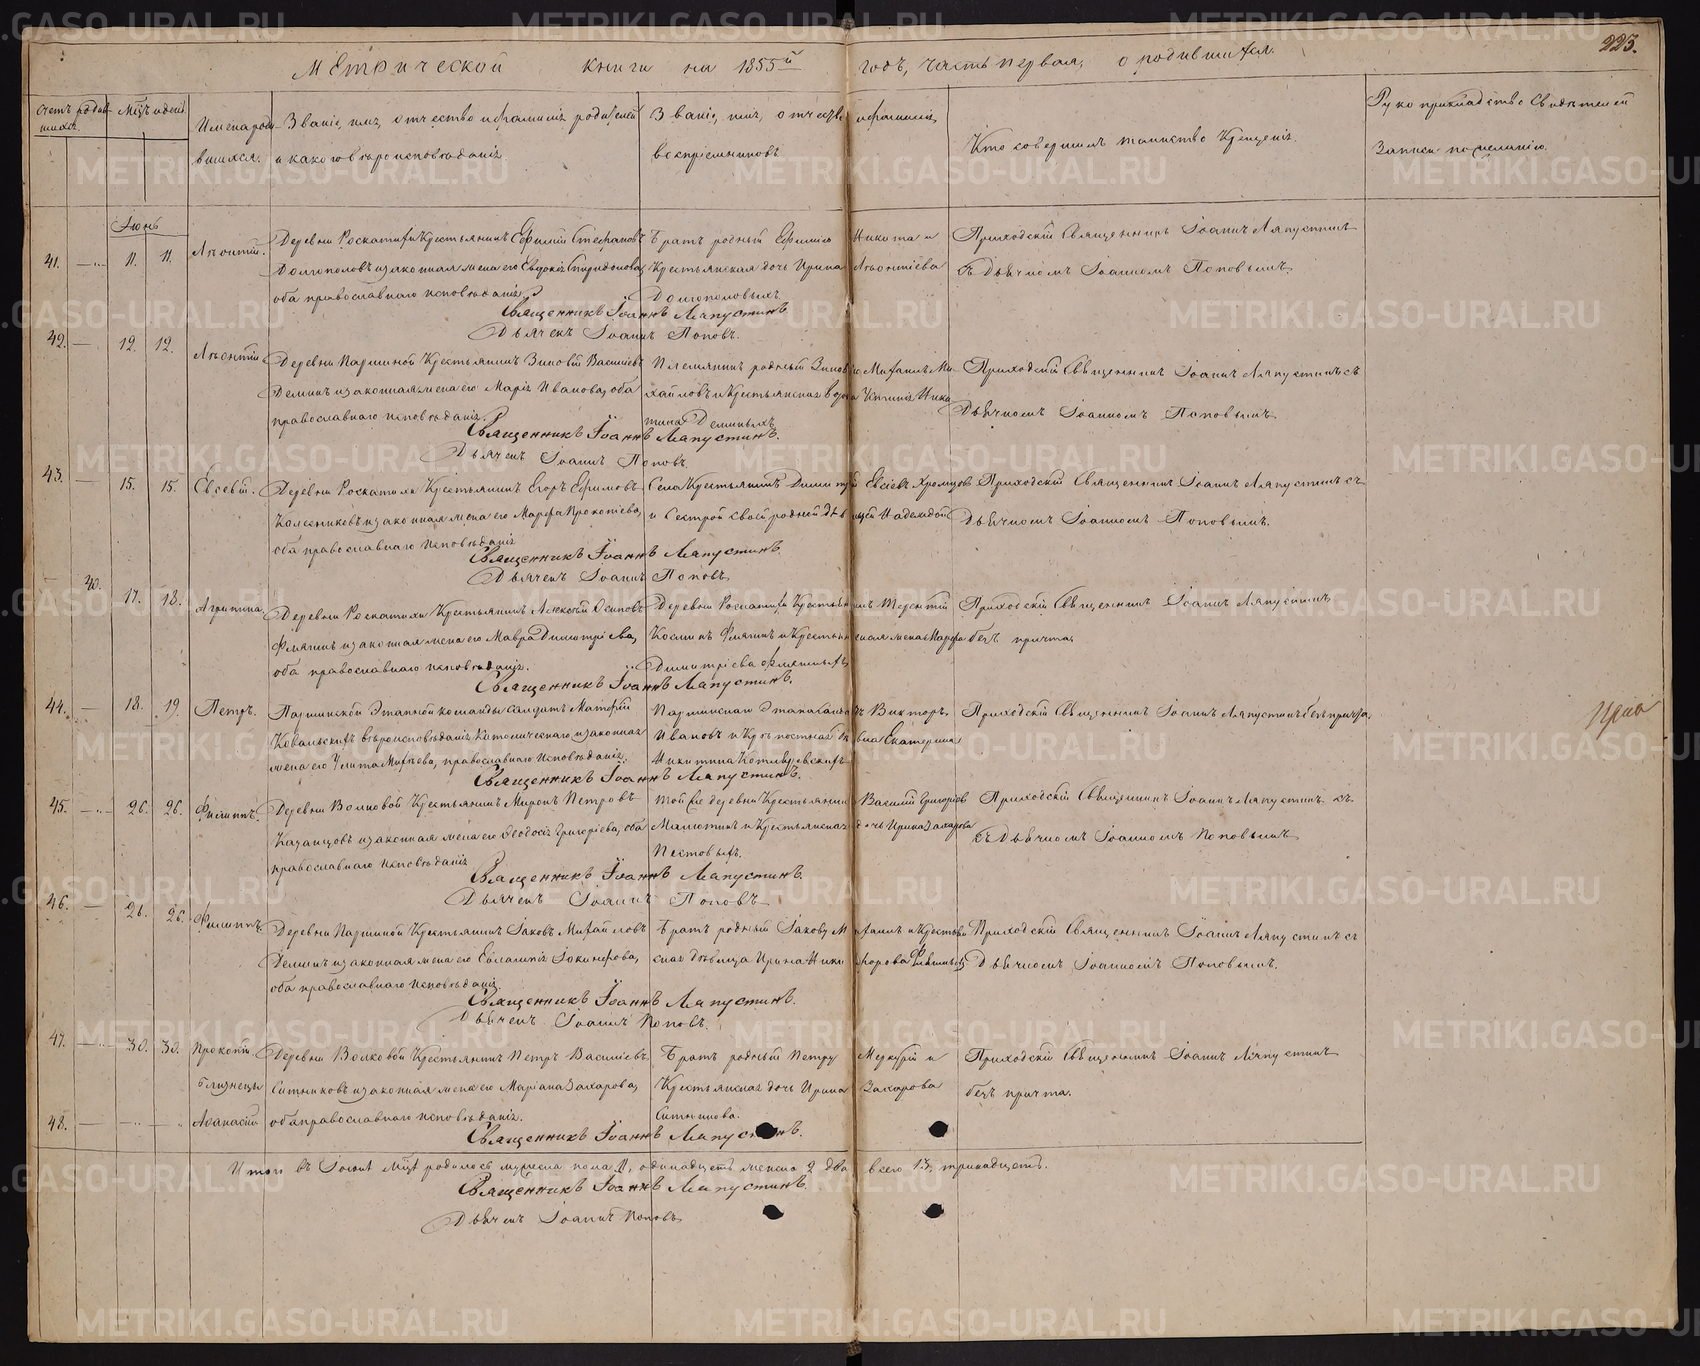 223.
Метрической книги на 1855й годъ, часть первая, о родившихся.
Счетъ родив-
шихся.
Мѣсяцъ и день.
Имена роди-
вшихся.
Званіе, имя, отчество и фамилія родителей
и какого вѣроисповѣданія.
Званіе, имя, отчество и фамилія
воспріемниковъ
Кто совершалъ таинство Крещенія.
Рукоприкладство Свидѣтелей
Записи по желанію.
Іюнь
41. 11. 11. Леонтій.
Деревни Роскатихи Крестьянинъ Ефимій Стефановъ
Долгополовъ и законная жена его Евдокія Спиридонова,
оба православнаго исповѣданія
Братъ родный Ефимію Никита и
Крестьянская дочь Ирина Леонтіева
Долгополовыхъ
Приходскій Священникъ Іоаннъ Ляпустинъ
съ Дьячкомъ Іоанномъ Поповымъ
Священникъ Іоаннъ Ляпустинъ
Дьячекъ Іоаннъ Поповъ.
42. 12. 12. Леонтій
Деревни Паршиной Крестьянинъ Зиновій Васильевъ
Деминъ и законная жена его Марія Иванова, оба
православнаго исповѣданія.
Племянникъ родный Зиновію Михаилъ Ми-
хайловъ и Крестьянская вдова Ники-
тина Деминыхъ
Приходскій Священникъ Іоаннъ Ляпустинъ съ
Дьячкомъ Іоанномъ Поповымъ
Священникъ Іоаннъ Ляпустинъ.
Дьячекъ Іоаннъ Поповъ.
43. 15. 15. Евсевій.
Деревни Роскатихи Крестьянинъ Егоръ Ефимовъ
Колесниковъ и законная жена его Марфа Прокопіева,
оба православнаго исповѣданія
Села Крестьянинъ Димитрій Евсіевъ Хромцовъ
и Сестрой своей родной дѣвицей Надеждой
Приходскій Священникъ Іоаннъ Ляпустинъ съ
Дьячкомъ Іоанномъ Поповымъ.
Священникъ Іоаннъ Ляпустинъ.
Дьячекъ Іоаннъ Поповъ
17. 18. Агрипина
Деревни Роскатихи Крестьянинъ Алексѣй Осиповъ
Флягинъ и законная жена его Мавра Димитріева,
оба православнаго исповѣданія.
Деревни Роскатихи Крестьянинъ Терентій
Косминъ Флягинъ и Крестьянская жена Марфа
Димитріева Флягиныхъ
Приходскій Священникъ Іоаннъ Ляпустинъ
безъ причта.
Священникъ Іоаннъ Ляпустинъ.
44. 18. 19. Петръ.
Паршинской Этапной команды Солдатъ Матфій
Ковальскихъ вѣроисповѣданія Католическаго и законная
жена его Улита Михѣева, православнаго исповѣданія.
Паршинскаго Этапа Солдатъ Викторъ
Ивановъ и Крѣпостная дѣвка Екатерина
Никитина
Приходскій Священникъ Іоаннъ Ляпустинъ безъ причта.
Священникъ Іоаннъ Ляпустинъ.
45. 26. 26. Филиппъ.
Деревни Волковой Крестьянинъ Миронъ Петровъ
Казанцовъ и законная жена его Феодосія Григоріева, оба
православнаго исповѣданія
Той же деревни Крестьянинъ Василій Григоріевъ
Малютинъ и Крестьянская дочь Ирина Захарова
Пестовыхъ.
Приходскій Священникъ Іоаннъ Ляпустинъ съ
съ Дьячкомъ Іоанномъ Поповымъ
Священникъ Іоаннъ Ляпустинъ.
Дьячекъ Іоаннъ Поповъ
46. 26. 26. Филиппъ.
Деревни Паршиной Крестьянинъ Іаковъ Михайловъ
Деминъ и законная жена его Евлампія Іокинфова,
оба православнаго исповѣданія.
Братъ родный Іакову Михаилъ и Крестьян-
ская дѣвица Ирина Никифорова
Приходскій Священникъ Іоаннъ Ляпустинъ съ
Дьячкомъ Іоанномъ Поповымъ.
Священникъ Іоаннъ Ляпустинъ.
Дьячекъ Іоаннъ Поповъ.
47. 30. 30. Прокопій
Близнецы
48. Афанасій
Деревни Волковой Крестьянинъ Петръ Васильевъ
Ситниковъ и законная жена его Маріана Захарова,
оба православнаго исповѣданія.
Братъ родный Петру Меркурій и
Крестьянская дочь Ирина Захарова
Ситникова.
Приходскій Священникъ Іоаннъ Ляпустинъ
безъ причта.
Священникъ Іоаннъ Ляпустинъ.
Итого въ Іюнѣ Мцѣ родилось мужеска пола 11, одинадцать женска 2 два всего 13, тринадцать.
Священникъ Іоаннъ Ляпустинъ.
Дьячекъ Іоаннъ Поповъ
METRIKI.GASO-URAL.RU